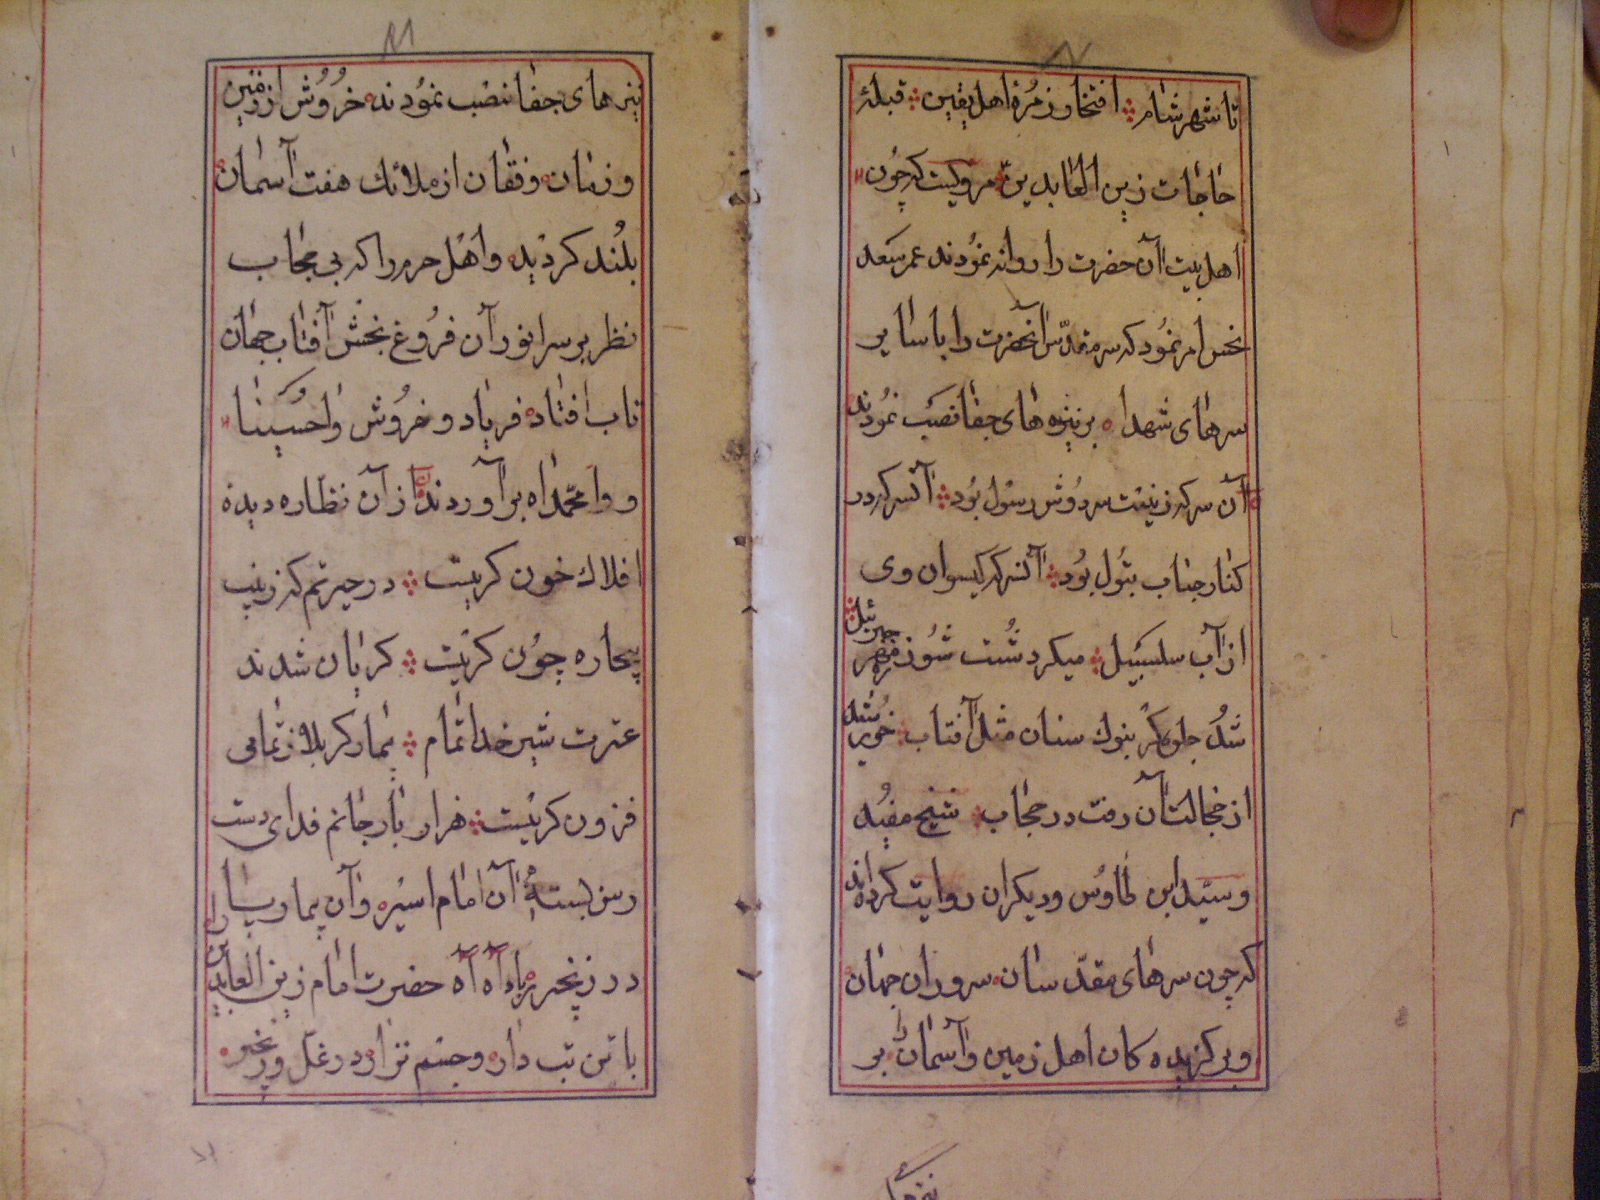 تا شهر شام افتخار زمرهٔ اهل یقین قبلهٔ
حاجات زین العابدین مرویست که چون
اهل بیت آن حضرت را روانه نمودند عمر سعد
نحس امر نمود که سر مقدّس آنحضرت را با سایر
سرهای شهدا بر نیزه های جفا نصب نمودند
آن سر که زینت سر دوش رسول بود آنسر که در
کنار جناب بتول بود آنسر که گیسوان وی
از آب سلسبیل میکرد شست شو ز مهر جبرئیل
شد جلوه گر بنوک سنان مثل آفتاب خورشید
از خجالت آن رفت در حجاب شیخ مفید
و سیّد ابن طاوس و دیگران روایت کرده اند
که چون سرهای مقدّسان سروران جهان
و برگزیده کان اهل زمین و آسمان را بر
نیزهای جفا نصب نمودند خروش از زمین
و زمان و فقان از ملائک هفت آسمان
بلند کردید و اهل حرم را که بی حجاب
نظر بر سر انور آن فروغ بخش آفتاب جهان
تاب افتاد فریاد و خروش واحسینا
و وا محمداه برآوردند از آن نظاره دیدهٔ
افلاک خون کریست در حیرتم که زینب
بیچاره چون کریست کریان شدند
عترت شیر خدا تمام بیمار کربلا ز تمامی
فزون کریست هزار بار جانم فدای دست
رسن بستهٔ آن امام اسیر و آن بیمار پا را
در زنجیر باد آه آه حضرت امام زین العابدین
با تن تب دار و جسم نزار در غلّ و زنجیر